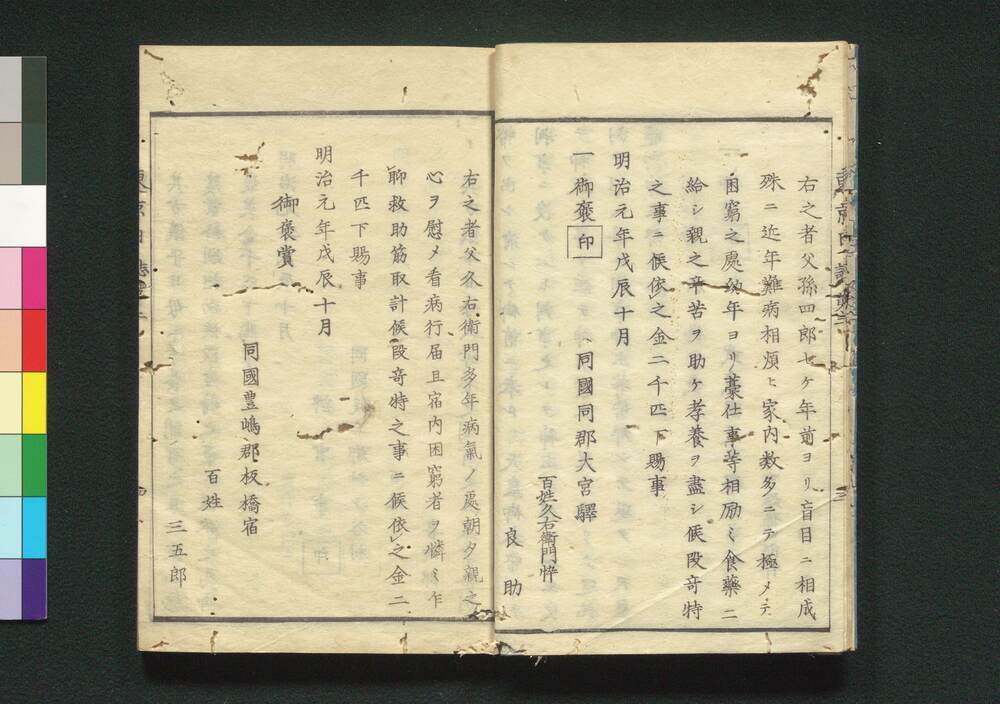 右之者父孫四郎七ケ年前ヨリ盲目ニ相成
殊ニ近年難病相煩ヒ家内数多ニテ極メテ
困窮之處幼年ヨリ藁仕事等相励ミ食藥ニ
給シ親之辛苦ヲ助ケ孝養ヲ盡シ候段竒特
之事ニ候依之金二千匹下賜事
明治元年戊辰十月
一御褒 印 同國同郡大宮驛
百姓久右衛門悴
良助
右之者父久右衛門多年病氣ノ處朝夕親之
心ヲ慰メ看病行届且宿内困窮者ヲ憐ミ乍
聊救助筋取計候段竒特之事ニ候依之金二
千匹下賜事
明治元年戊辰十月
御褒賞
同國豊嶋郡板橋宿
百姓
三五郎